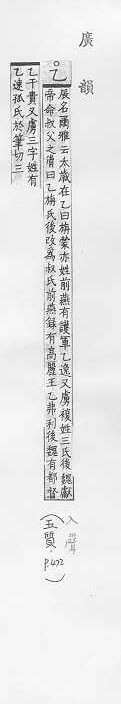 廣韻
乙
辰名爾雅云太歲在乙曰旃蒙亦姓前燕有護軍乙逸又虜複姓三氏後魏獻
帝命叔父之胄曰乙旃氏後改爲叔氏前燕錄有高麗王乙弗利後魏有都督
乙干貴又虜三字姓有
乙速孤氏於筆切三
入聲
(五質.
p.472)